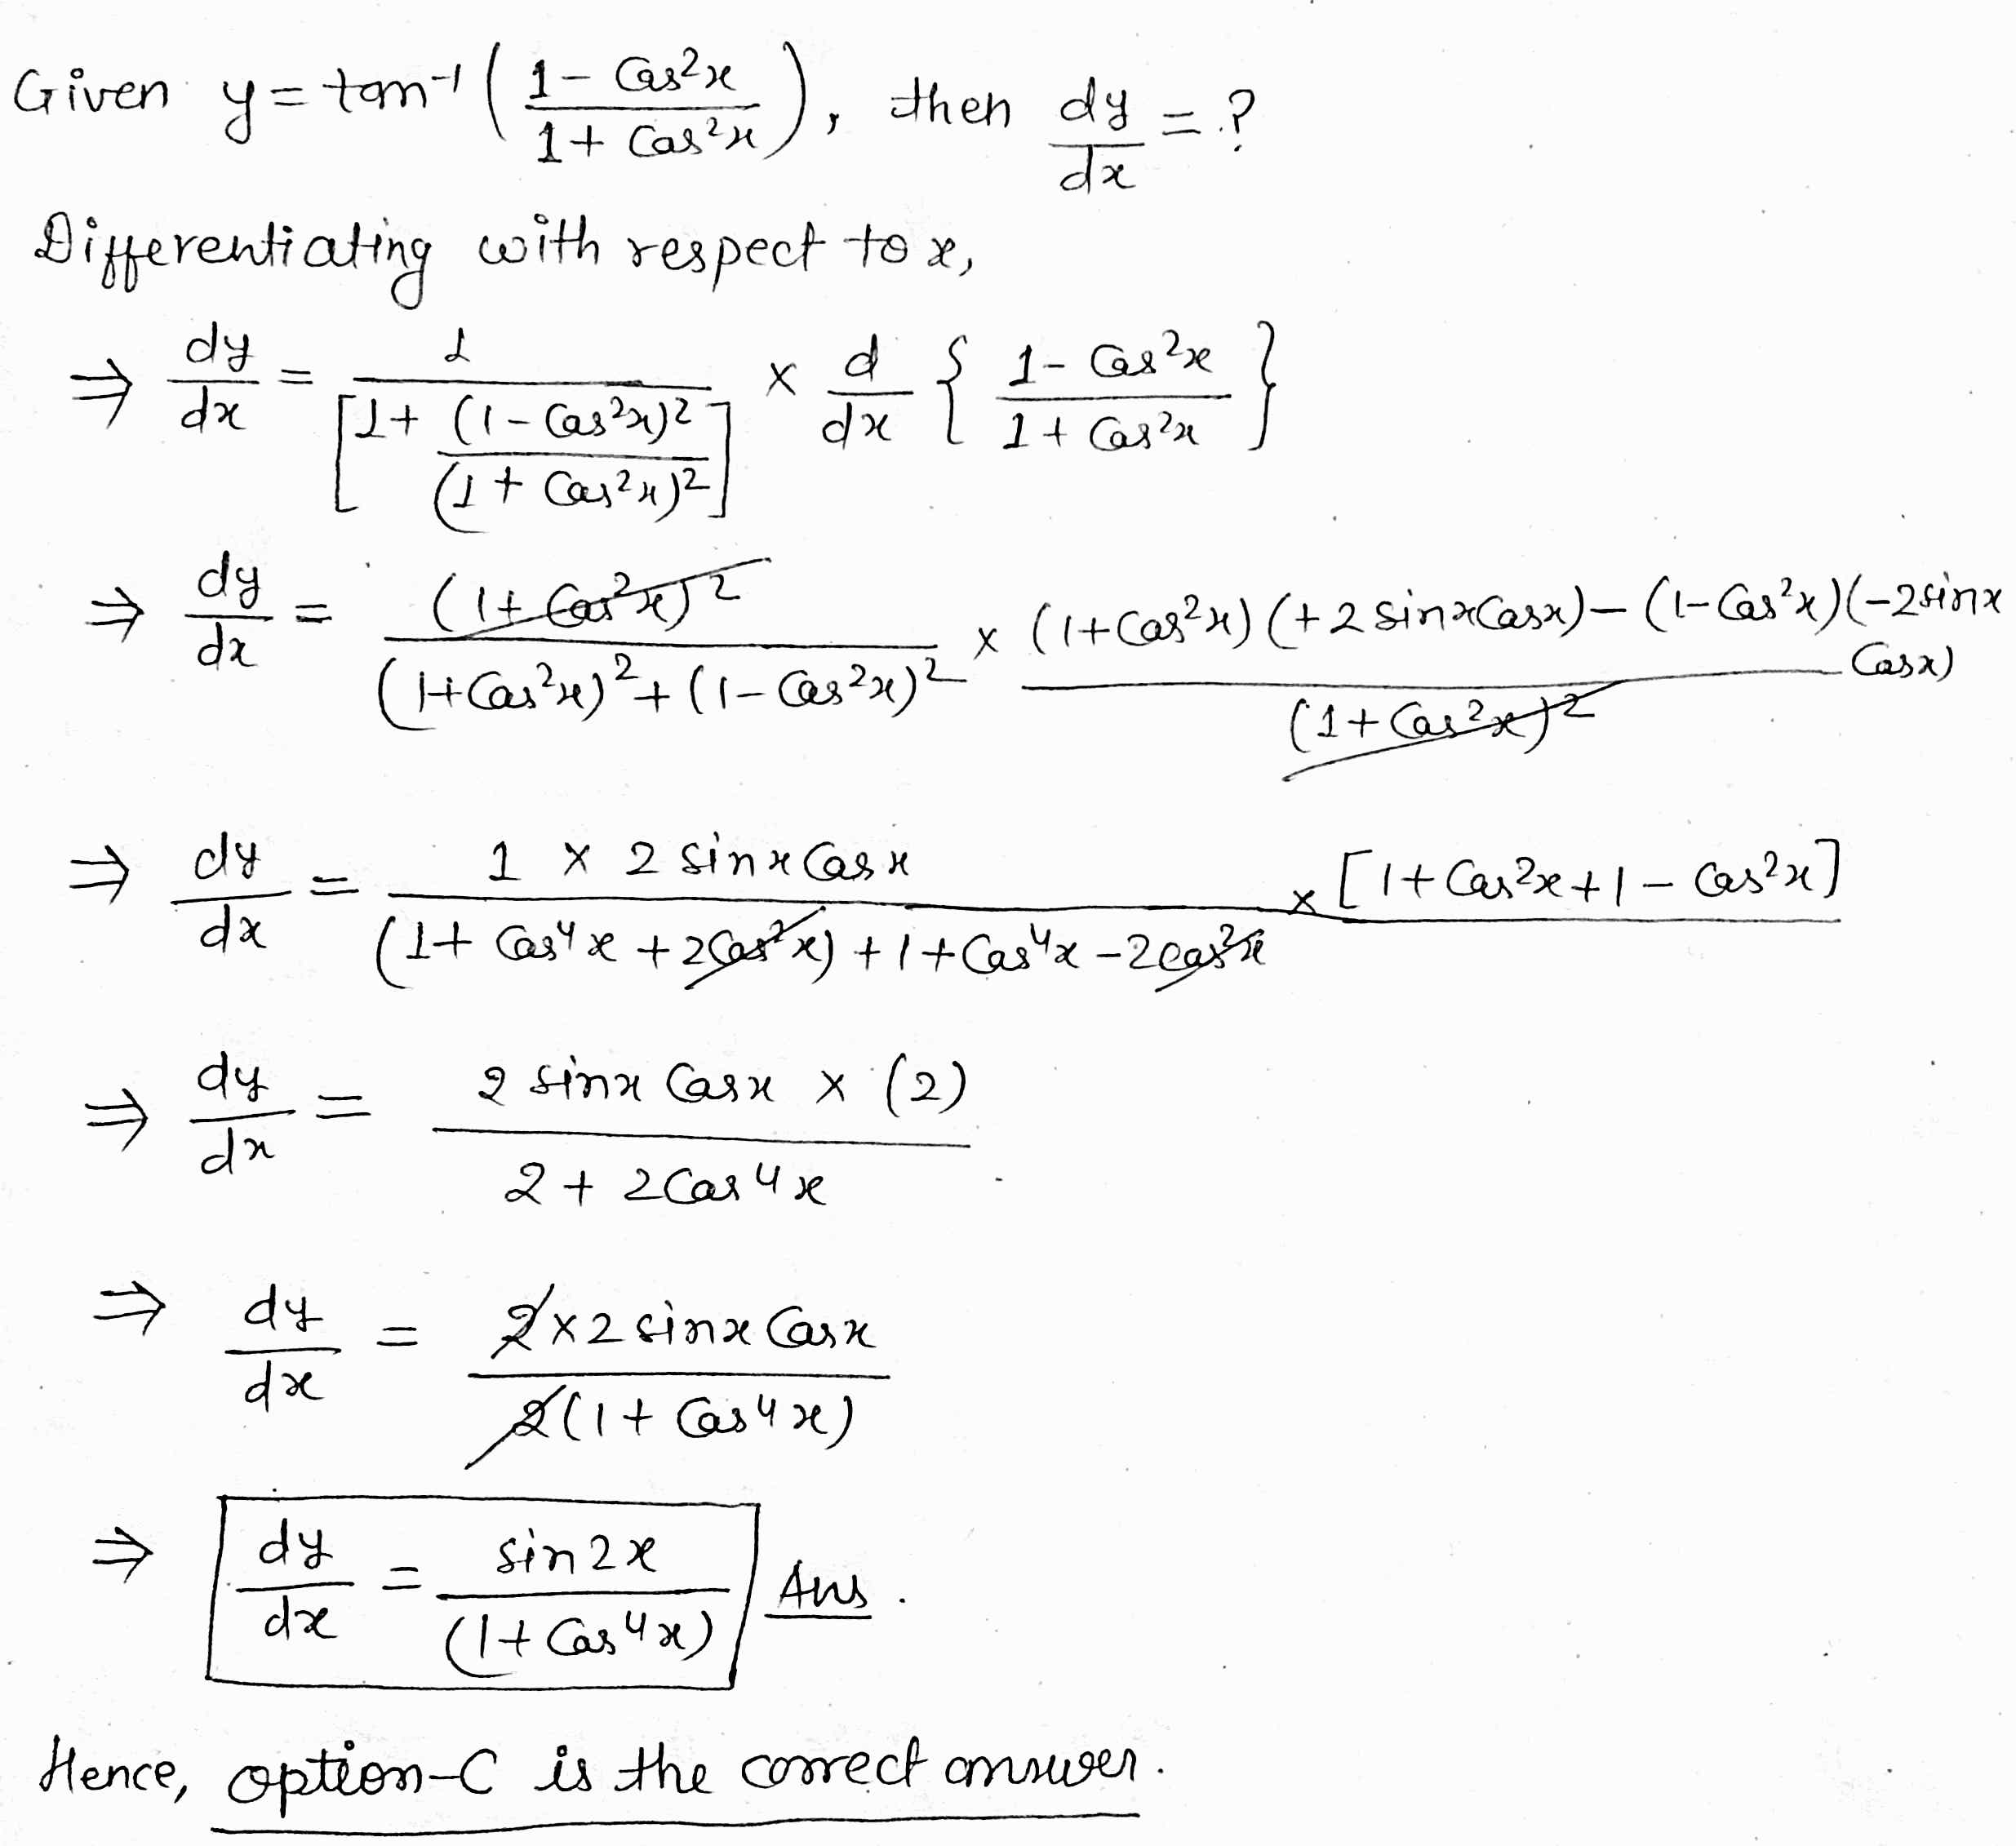 Given y = tan⁻¹ ( (1 - Cos²x) / (1 + Cos²x) ), then dy/dx = ?
Differentiating with respect to x,
⇒ dy/dx = 1 / [1 + (1 - Cos²x)² / (1 + Cos²x)²] × d/dx { (1 - Cos²x) / (1 + Cos²x) }
⇒ dy/dx = (1 + Cos²x)² / ((1 + Cos²x)² + (1 - Cos²x)²) × ((1 + Cos²x) (+2 sinx Cosx) - (1 - Cos²x) (-2 sinx Cosx)) / (1 + Cos²x)²
⇒ dy/dx = 1 × 2 sinx Cosx × [1 + Cos²x + 1 - Cos²x] / ((1 + Cos⁴x + 2Cos²x) + 1 + Cos⁴x - 2Cos²x)
⇒ dy/dx = 2 sinx Cosx × (2) / (2 + 2Cos⁴x)
⇒ dy/dx = 2 × 2 sinx Cosx / (2(1 + Cos⁴x))
⇒ dy/dx = sin2x / (1 + Cos⁴x) Ans.
Hence, option-C is the correct answer.